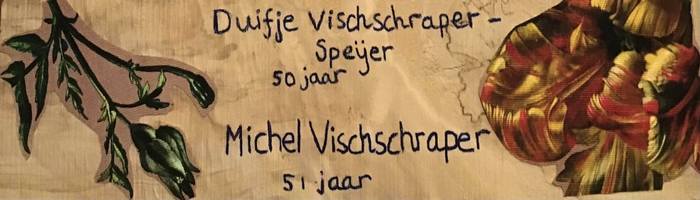 Duifje Vischschraper -
Speijer
50 jaar
Michel Vischschraper
51 jaar